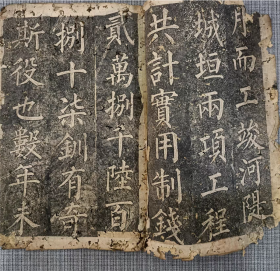 月而工竣河隄
城垣兩項工程
共計實用制錢
貳萬捌千陸百
捌十柒釧有奇
斯役也數年未